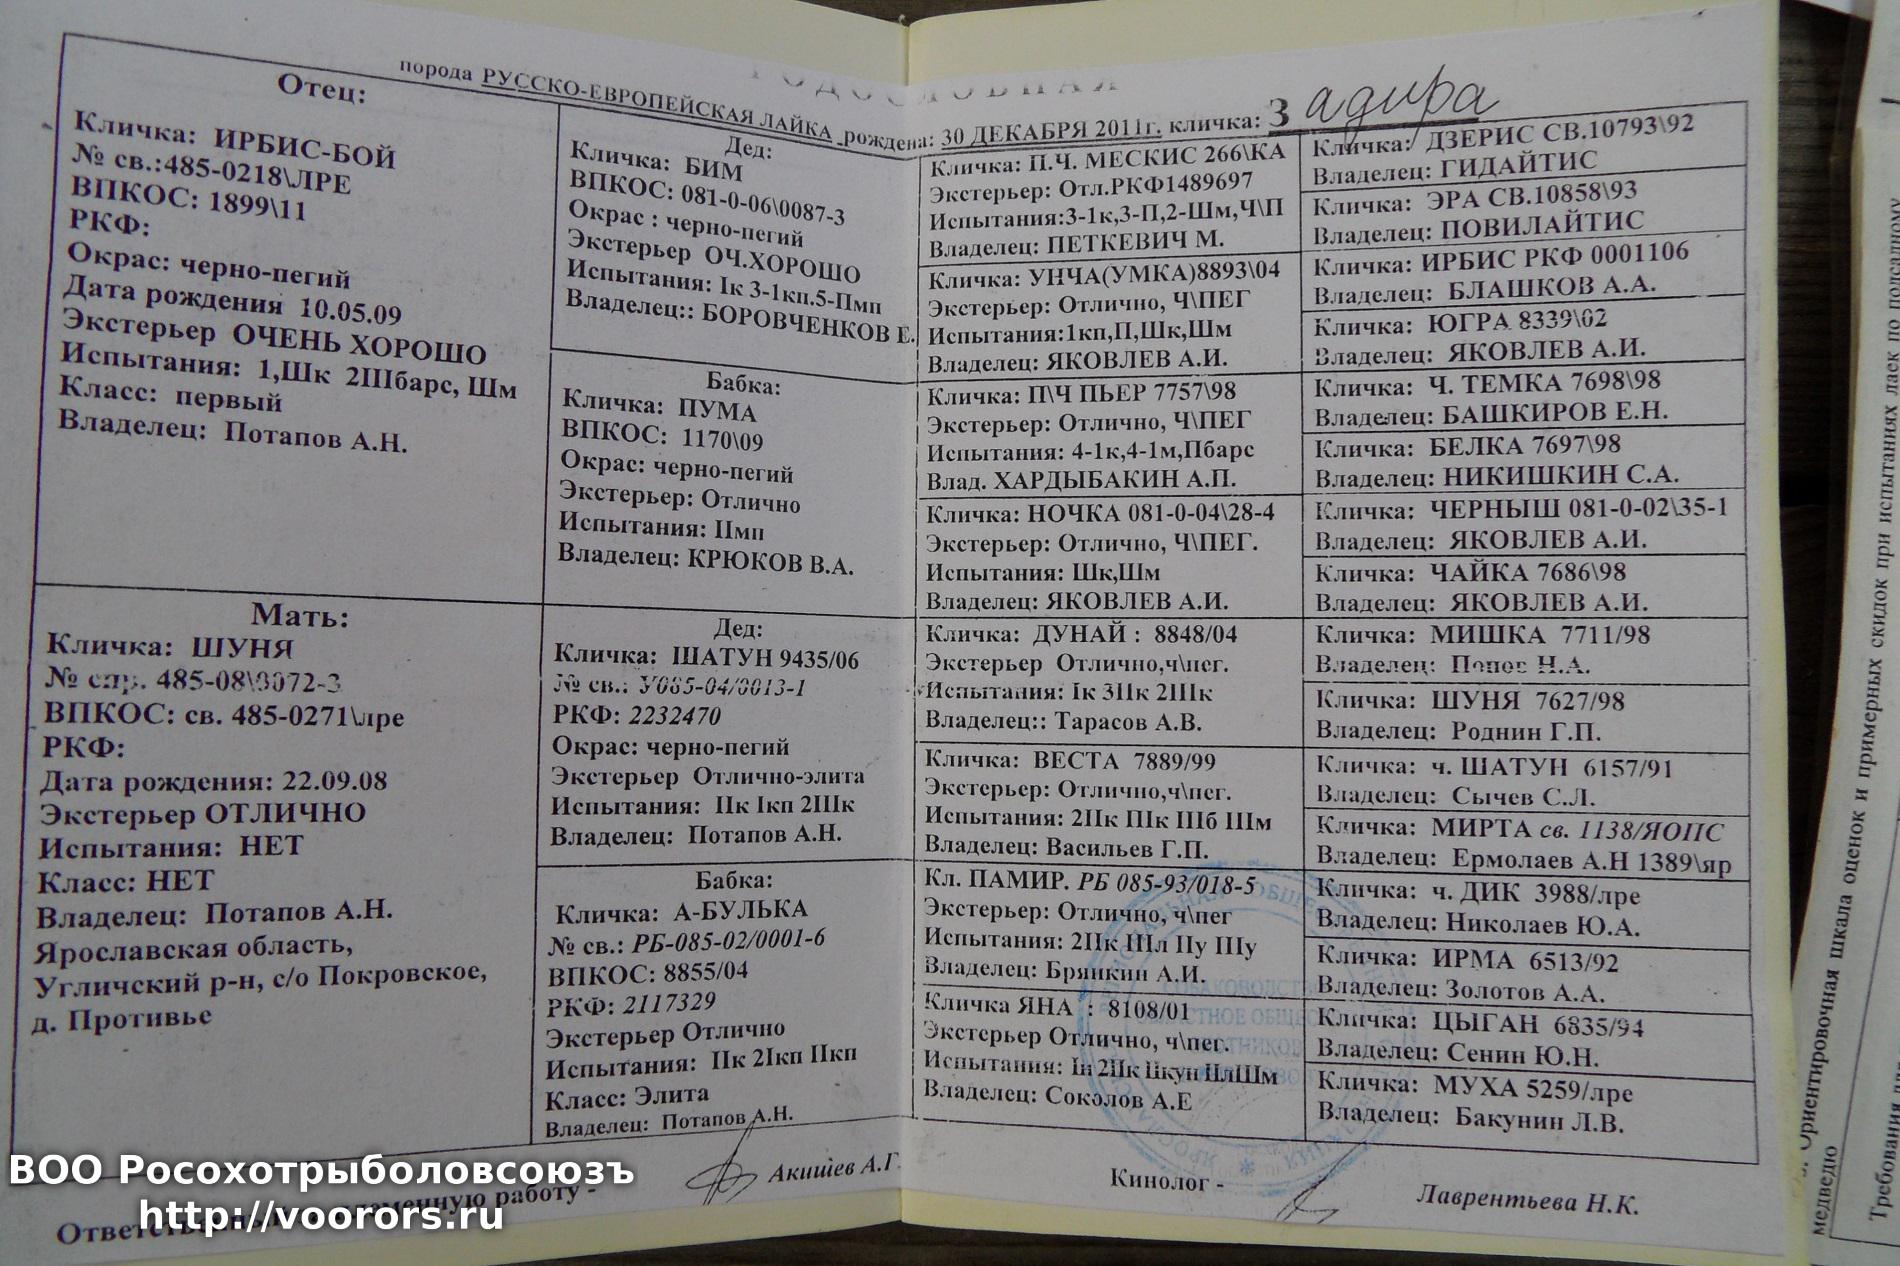 РОДОСЛОВНАЯ
порода РУССКО-ЕВРОПЕЙСКАЯ ЛАЙКА рождена: 30 ДЕКАБРЯ 2011г. кличка: Задира
Отец:
Кличка: ИРБИС-БОЙ
№ св.:485-0218\ЛРЕ
ВПКОС: 1899\11
РКФ:
Окрас: черно-пегий
Дата рождения 10.05.09
Экстерьер ОЧЕНЬ ХОРОШО
Испытания: 1,Шк 2IIIбарс, Шм
Класс: первый
Владелец: Потапов А.Н.
Мать:
Кличка: ШУНЯ
№ спр. 485-08\0072-3
ВПКОС: св. 485-0271\лре
РКФ:
Дата рождения: 22.09.08
Экстерьер ОТЛИЧНО
Испытания: НЕТ
Класс: НЕТ
Владелец: Потапов А.Н.
Ярославская область,
Угличский р-н, с/о Покровское,
д. Противье
Дед:
Кличка: БИМ
ВПКОС: 081-0-06\0087-3
Окрас : черно-пегий
Экстерьер ОЧ.ХОРОШО
Испытания: Iк 3-1кп.5-Пмп
Владелец:: БОРОВЧЕНКОВ Е.
Бабка:
Кличка: ПУМА
ВПКОС: 1170\09
Окрас: черно-пегий
Экстерьер: Отлично
Испытания: IIмп
Владелец: КРЮКОВ В.А.
Дед:
Кличка: ШАТУН 9435/06
№ св.: У085-04/0013-1
РКФ: 2232470
Окрас: черно-пегий
Экстерьер Отлично-элита
Испытания: IIк Iкп 2IIIк
Владелец: Потапов А.Н.
Бабка:
Кличка: А-БУЛЬКА
№ св.: РБ-085-02/0001-6
ВПКОС: 8855/04
РКФ: 2117329
Экстерьер Отлично
Испытания: IIк 2Iкп IIкп
Класс: Элита
Владелец: Потапов А.Н.
Кличка: П.Ч. МЕСКИС 266\КА
Экстерьер: Отл.РКФ1489697
Испытания:3-1к,3-П,2-Шм,Ч\П
Владелец: ПЕТКЕВИЧ М.
Кличка: УНЧА(УМКА)8893\04
Экстерьер: Отлично, Ч\ПЕГ
Испытания:1кп,П,Шк,Шм
Владелец: ЯКОВЛЕВ А.И.
Кличка: П\Ч ПЬЕР 7757\98
Экстерьер: Отлично, Ч\ПЕГ
Испытания: 4-1к,4-1м,Пбарс
Влад. ХАРДЫБАКИН А.П.
Кличка: НОЧКА 081-0-04\28-4
Экстерьер: Отлично, Ч\ПЕГ.
Испытания: Шк,Шм
Владелец: ЯКОВЛЕВ А.И.
Кличка: ДУНАЙ : 8848/04
Экстерьер Отлично,ч\пег.
Испытания: Iк 3IIк 2IIIк
Владелец:: Тарасов А.В.
Кличка: ВЕСТА 7889/99
Экстерьер: Отлично,ч\пег.
Испытания: 2IIк IIIк IIIб IIIм
Владелец: Васильев Г.П.
Кл. ПАМИР. РБ 085-93/018-5
Экстерьер: Отлично, ч\пег
Испытания: 2IIк IIIл IIу IIIу
Владелец: Брянкин А.И.
Кличка ЯНА : 8108/01
Экстерьер Отлично, ч\пег.
Испытания: 2IIк
Владелец: Соколов А.Е
Кличка: ДЗЕРИС СВ.10793\92
Владелец: ГИДАЙТИС
Кличка: ЭРА СВ.10858\93
Владелец: ПОВИЛАЙТИС
Кличка: ИРБИС РКФ 0001106
Владелец: БЛАШКОВ А.А.
Кличка: ЮГРА 8339\02
Владелец: ЯКОВЛЕВ А.И.
Кличка: Ч. ТЕМКА 7698\98
Владелец: БАШКИРОВ Е.Н.
Кличка: БЕЛКА 7697\98
Владелец: НИКИШКИН С.А.
Кличка: ЧЕРНЫШ 081-0-02\35-1
Владелец: ЯКОВЛЕВ А.И.
Кличка: ЧАЙКА 7686\98
Владелец: ЯКОВЛЕВ А.И.
Кличка: МИШКА 7711/98
Владелец: Попов Н.А.
Кличка: ШУНЯ 7627/98
Владелец: Роднин Г.П.
Кличка: ч. ШАТУН 6157/91
Владелец: Сычев С.Л.
Кличка: МИРТА св. 1138/ЯОПС
Владелец: Ермолаев А.Н 1389\яр
Кличка: ч. ДИК 3988/лре
Владелец: Николаев Ю.А.
Кличка: ИРМА 6513/92
Владелец: Золотов А.А.
Кличка: ЦЫГАН 6835/94
Владелец: Сенин Ю.Н.
Кличка: МУХА 5259/лре
Владелец: Бакунин Л.В.
Акишев А.Г.
Кинолог - Лаврентьева Н.К.
ВОО Росохотрыболовсоюзъ
http://voorors.ru
Ориентировочная шкала оценок и примерных скидок при испытаниях лаек по подсадному
медведю